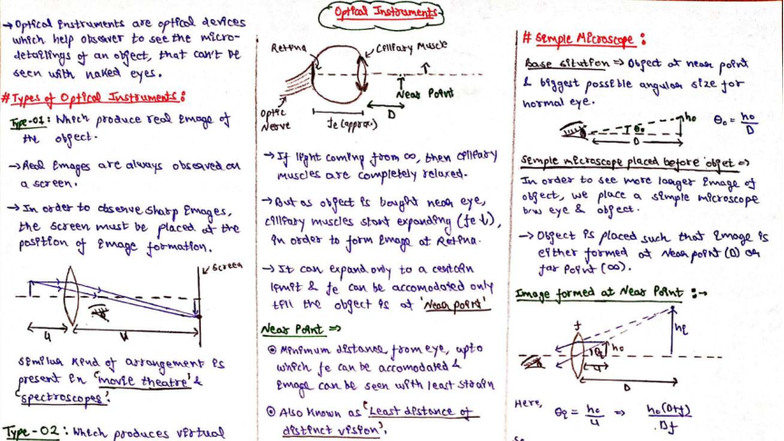 Optical Instruments
→ Optical Instruments are optical devices
which help observer to see the micro-
detailings of an object, that can't be
seen with naked eyes.
# Types of Optical Instruments:
Type-01: Which produce real Image of
the object.
→ Real Images are always observed on
a screen.
→ In order to observe sharp Images,
the screen must be placed at the
position of Image formation.
Screen
u
Similar kind of arrangement is
present in 'movie theatre' &
'spectroscopes'.
Type-02: Which produces virtual
Retina
Cilliary Muscle
Near Point
D
Optic
Nerve
fe (approx.)
→ If light coming from ∞, then cilliary
muscles are completely relaxed.
→ But as object is bought near eye,
cilliary muscles start expanding (fe ↓),
in order to form Image at Retina.
→ It can expand only to a certain
limit & fe can be accomodated only
till the object is at 'Near point'
Near Point ⇒
Minimum distance from eye, upto
which fe can be accomodated &
Image can be seen with least strain
Also known as 'Least distance of
distinct vision'.
# Simple Microscope:
Base sitution ⇒ Object at near point
& biggest possible angular size for
normal eye.
θo
ho
D
θo = ho/D
Simple microscope placed before objet ⇒
In order to see more larger Image of
object, we place a simple microscope
b/w eye & object.
→ Object is placed such that Image is
either formed at Near point (D) or
far Point (∞).
Image formed at Near Point :→
f
ho
hi
u
D
Here,
θi = ho/u ⇒ ho(D+f)/Df